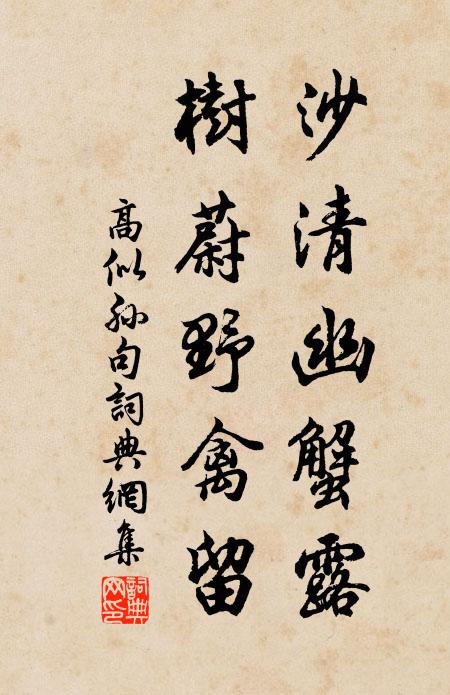 沙清幽蟹露
樹蔚野禽留
高似孫句詞典網集
詞典網印